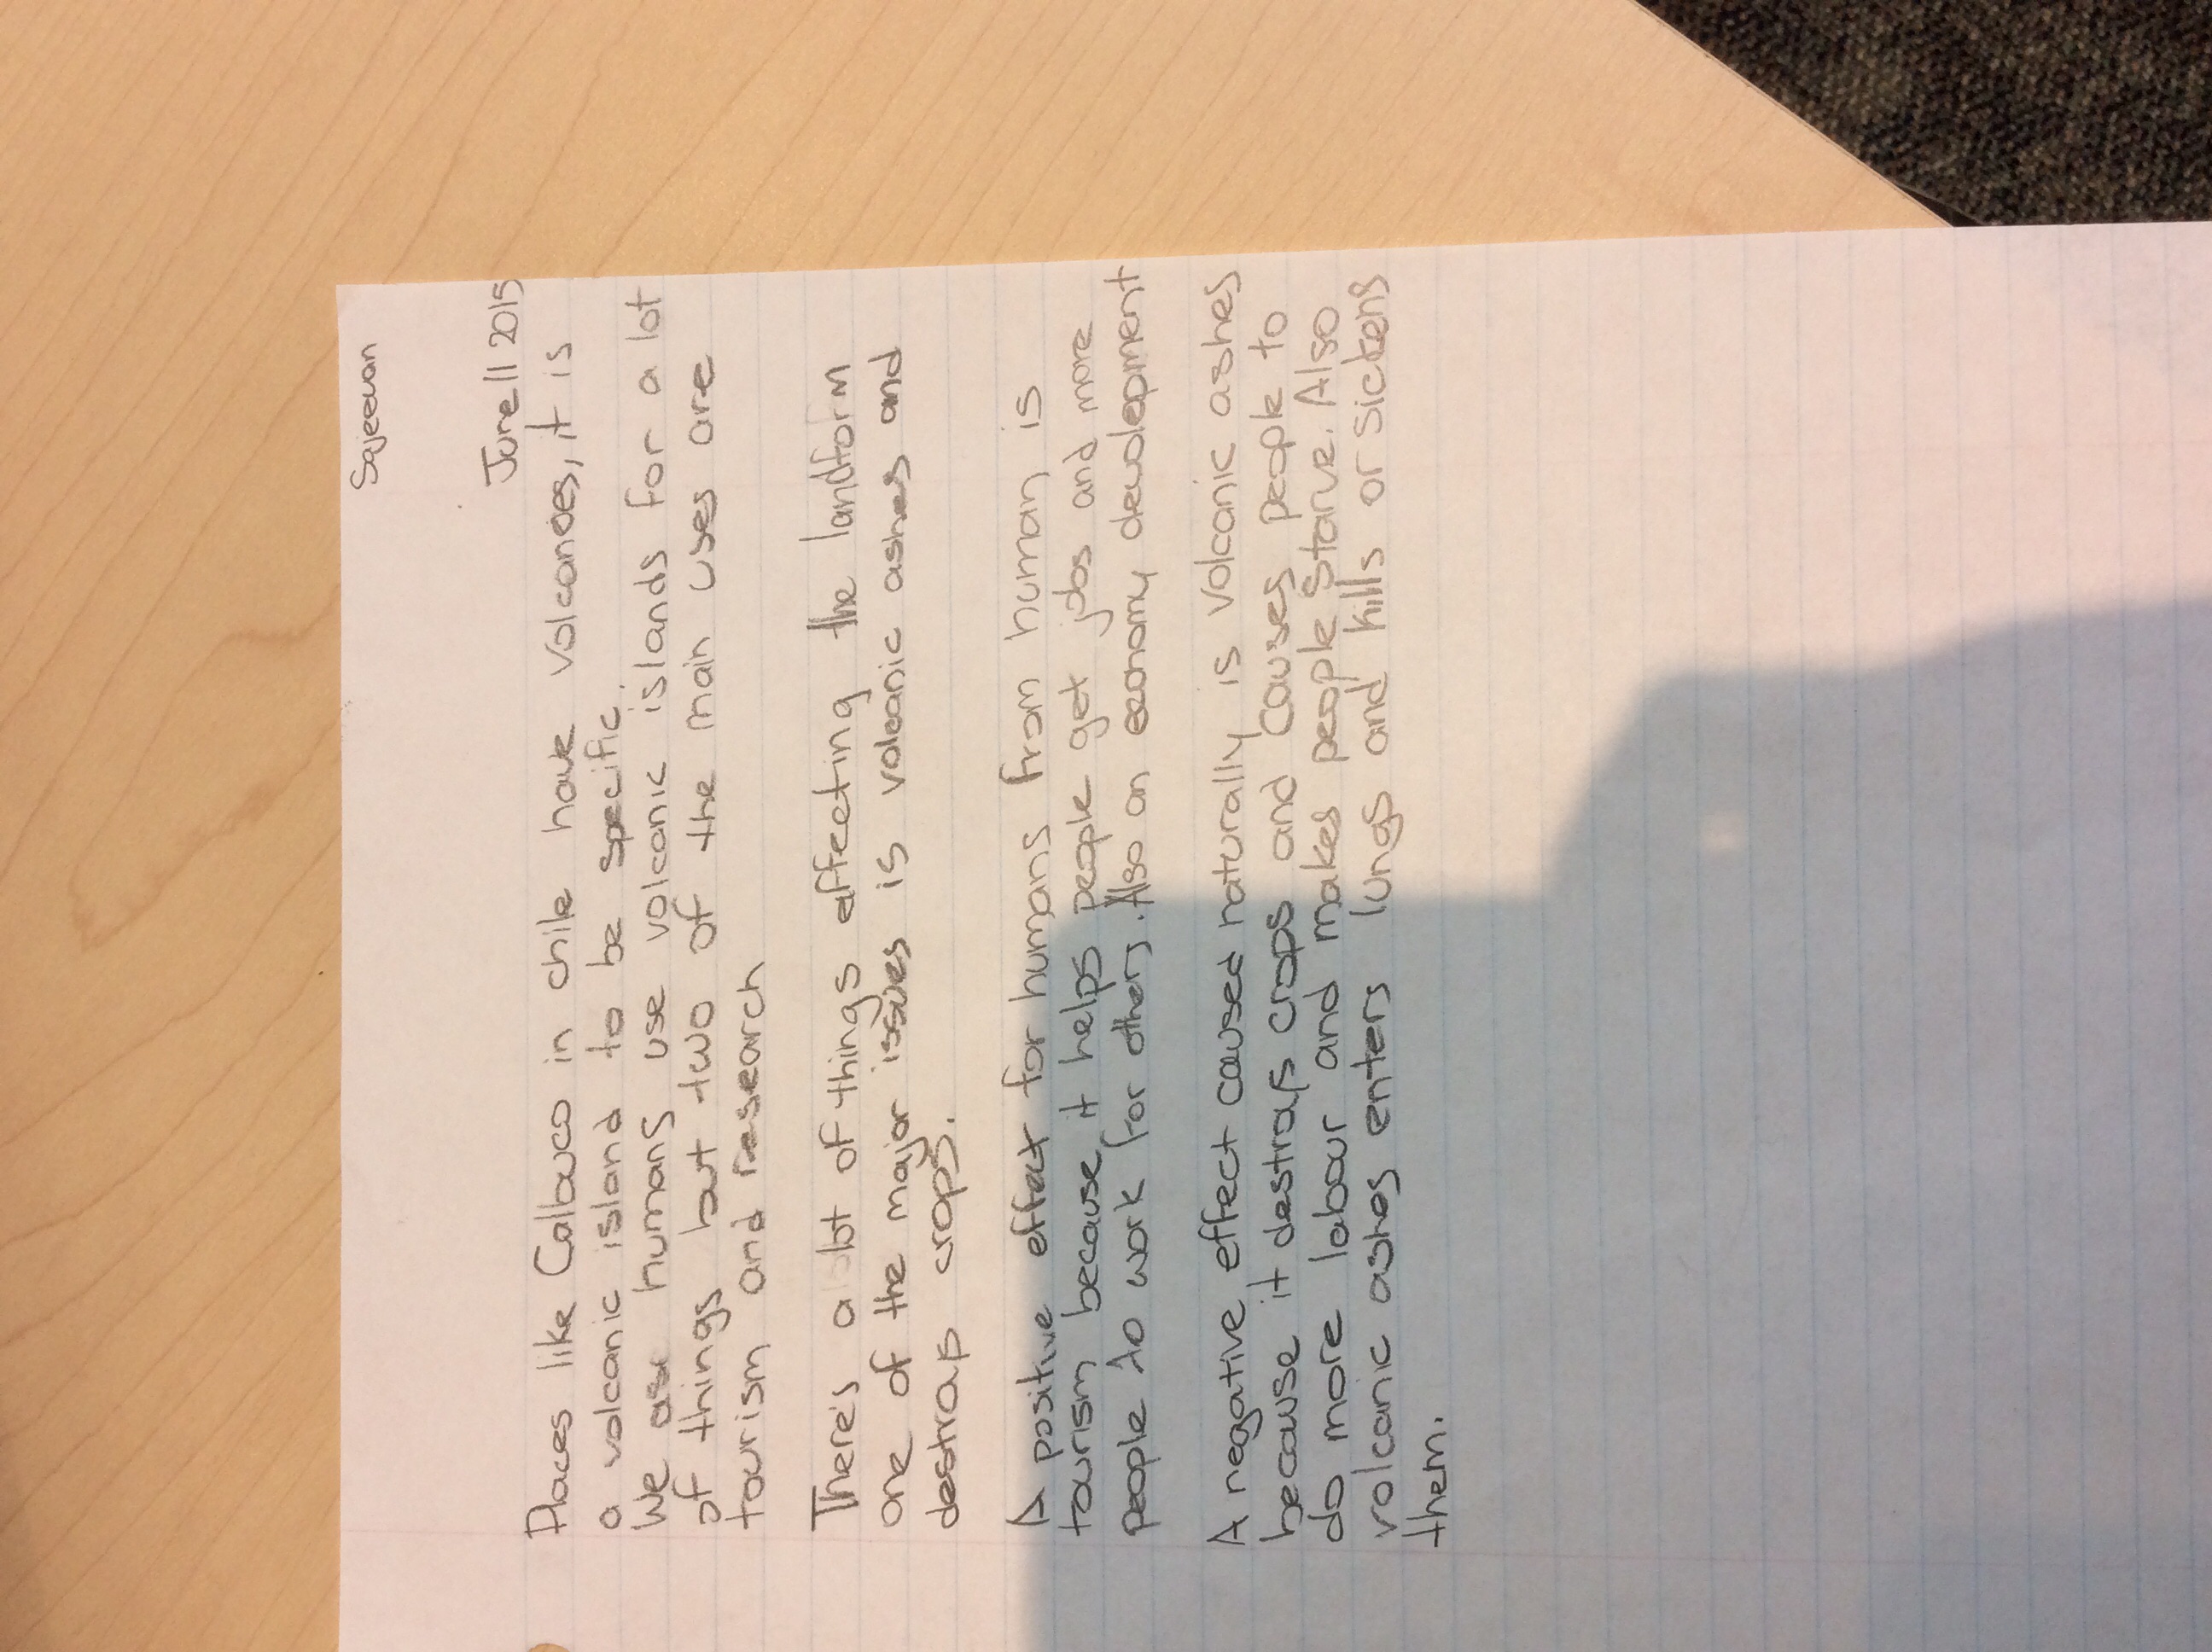 Sajeevan
June 11 2015
Places like Calbuco in chile have volcanoes, it is
a volcanic island to be specific.
We as humans use volcanic islands for a lot
of things but two of the main uses are
tourism and research
There's a lot of things affecting the landform
one of the major issues is volcanic ashes and
destroys crops.
A positive effect for humans from human is
tourism because it helps people get jobs and more
people to work for others. Also an economy devolepment
A negative effect caused naturally is volcanic ashes
because it destroys crops and causes people to
do more labour and makes people starve. Also
volcanic ashes enters lungs and kills or sickens
them.